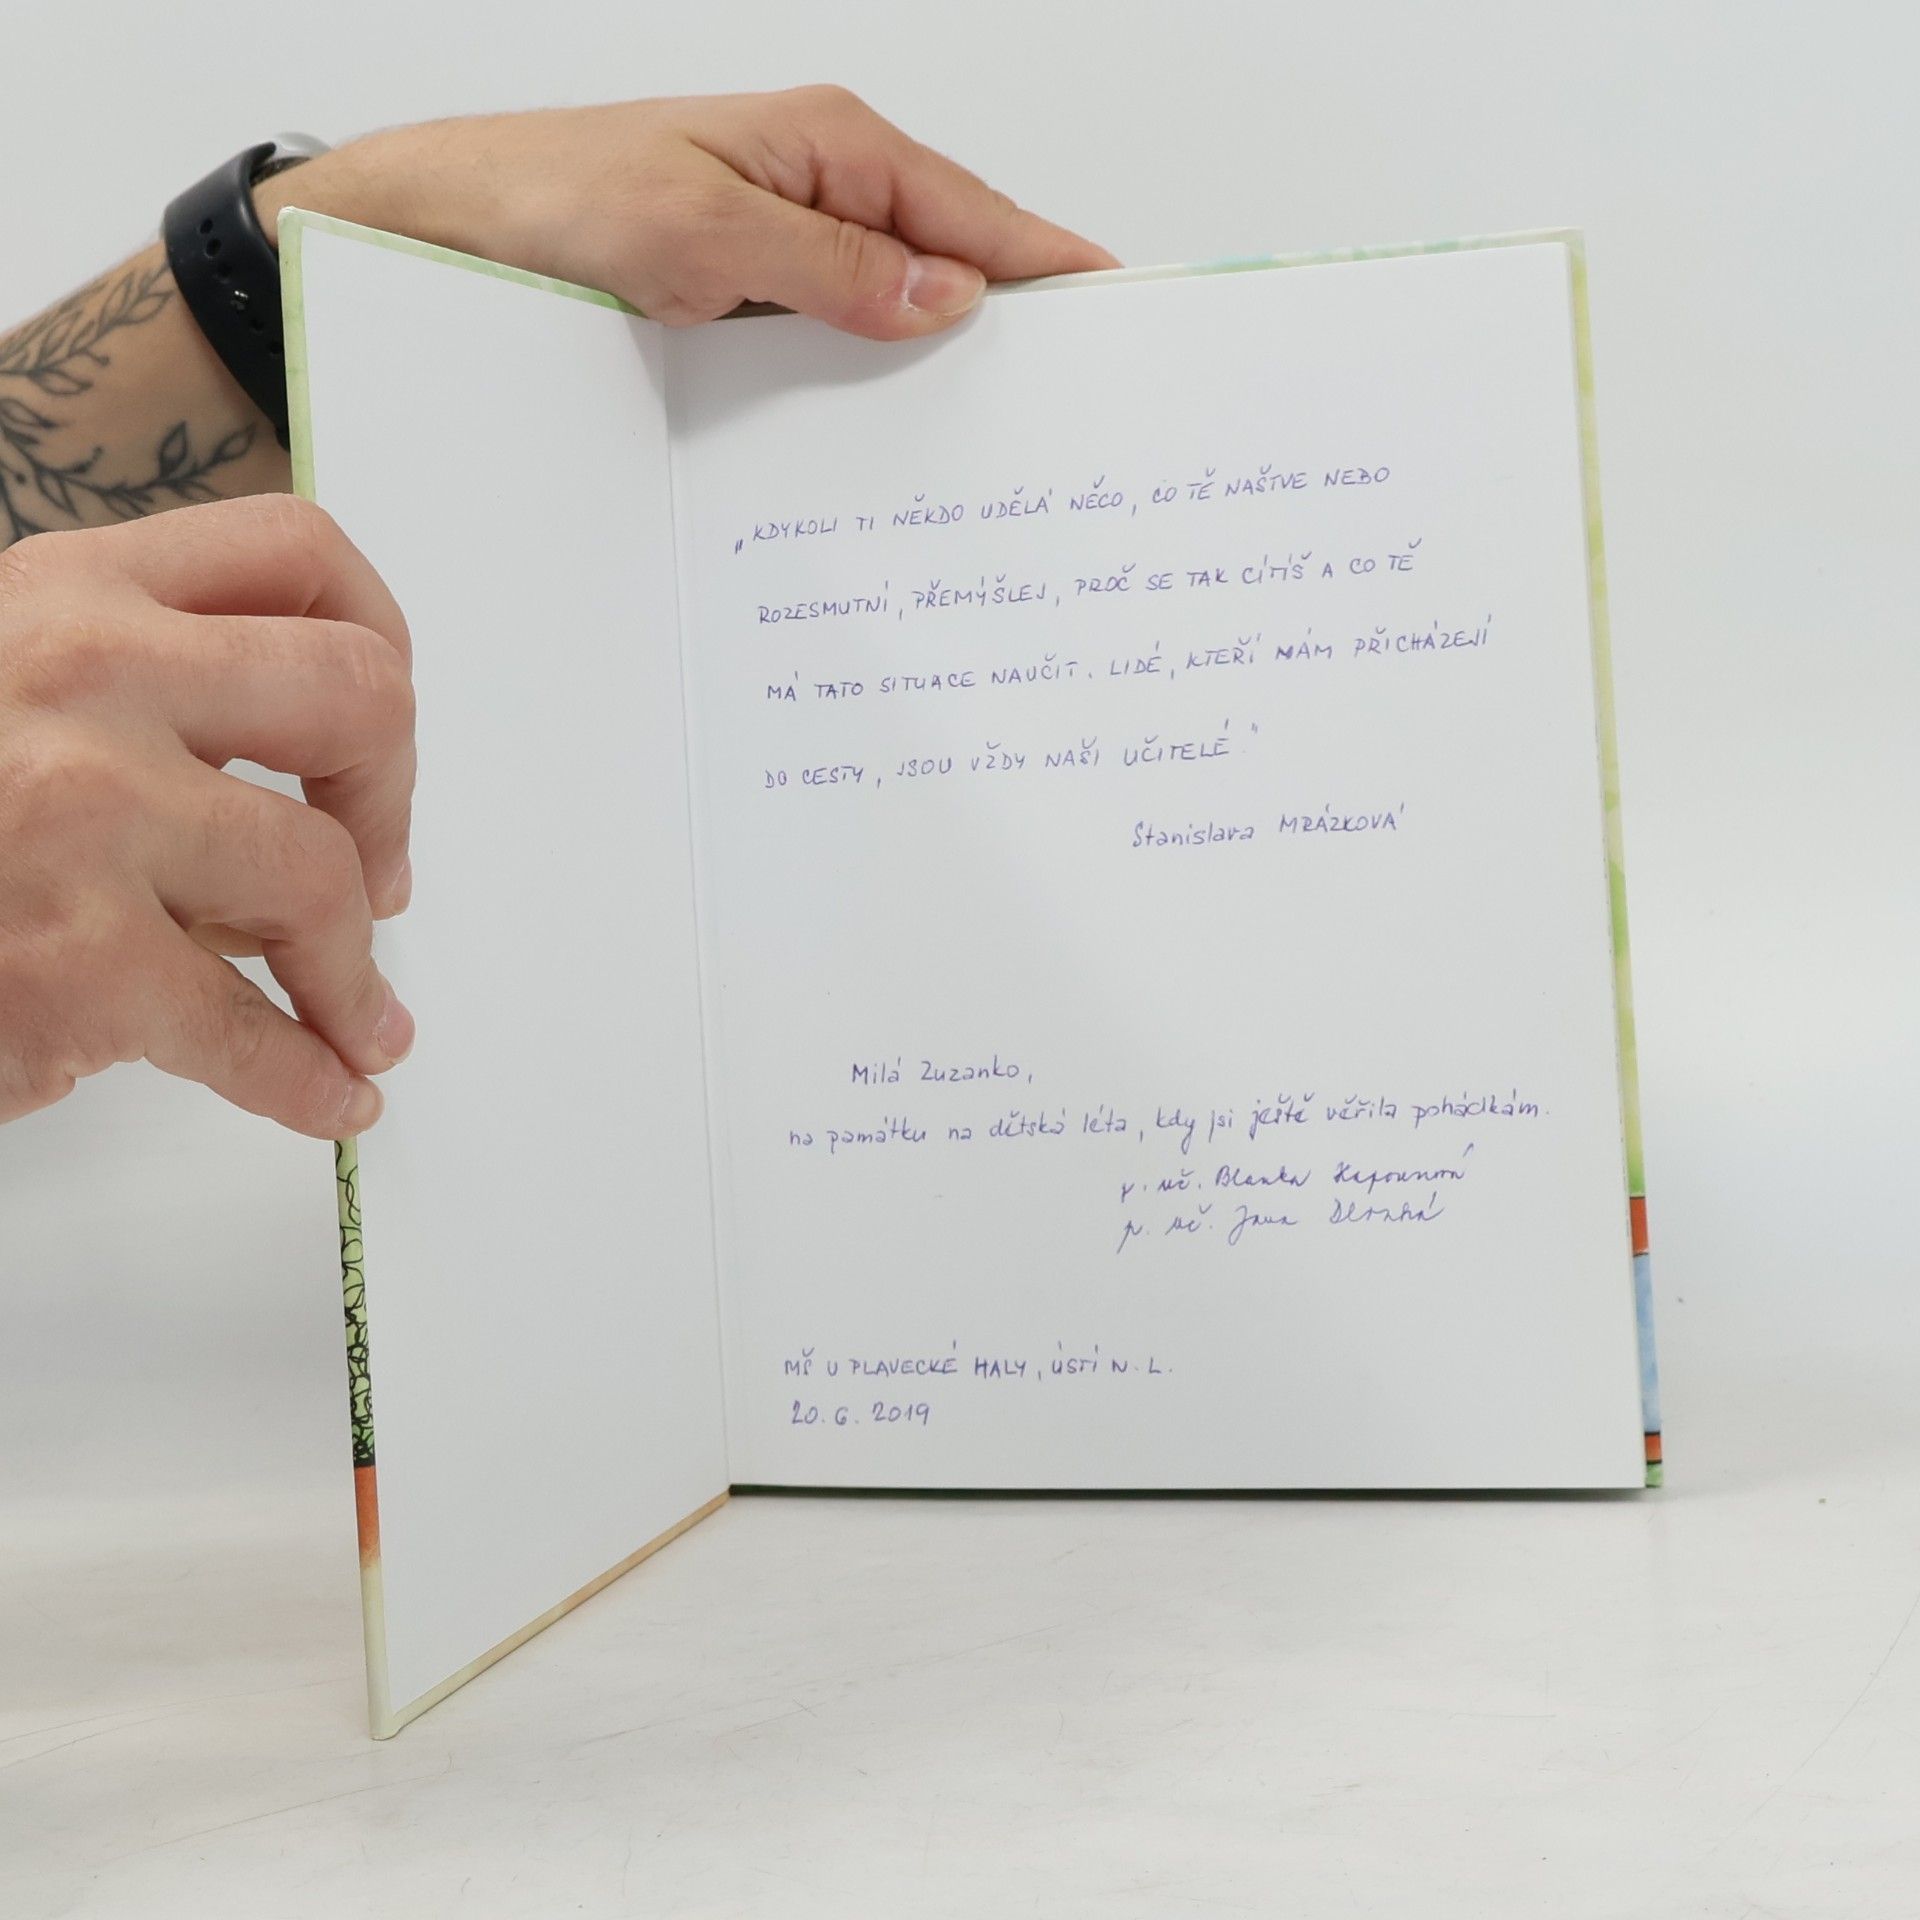 „KDYKOLI TI NĚKDO UDĚLÁ NĚCO, CO TĚ NAŠTVE NEBO
ROZESMUTNÍ, PŘEMÝŠLEJ, PROČ SE TAK CÍTÍŠ A CO TĚ
MÁ TATO SITUACE NAUČIT. LIDÉ, KTEŘÍ NÁM PŘICHÁZEJÍ
DO CESTY, JSOU VŽDY NAŠI UČITELÉ."
Stanislava MRÁZKOVÁ
Milá Zuzanko,
na památku na dětská léta, kdy jsi ještě věřila pohádkám.
p. uč. Blanka
p. uč. Jana
MŠ U PLAVECKÉ HALY, ÚSTÍ N. L.
20. 6. 2019